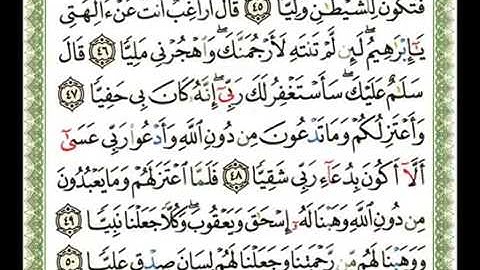 فَتَكُونَ لِلشَّيْطَٰنِ وَلِيًّا ٤٥ قَالَ أَرَاغِبٌ أَنتَ عَنْ ءَالِهَتِى
يَٰٓإِبْرَٰهِيمُ ۖ لَئِن لَّمْ تَنتَهِ لَأَرْجُمَنَّكَ ۖ وَٱهْجُرْنِى مَلِيًّا ٤٦ قَالَ
سَلَٰمٌ عَلَيْكَ ۖ سَأَسْتَغْفِرُ لَكَ رَبِّىٓ ۖ إِنَّهُۥ كَانَ بِى حَفِيًّا ٤٧
وَأَعْتَزِلُكُمْ وَمَا تَدْعُونَ مِن دُونِ ٱللَّهِ وَأَدْعُوا۟ رَبِّى عَسَىٰٓ
أَلَّآ أَكُونَ بِدُعَآءِ رَبِّى شَقِيًّا ٤٨ فَلَمَّا ٱعْتَزَلَهُمْ وَمَا يَعْبُدُونَ
مِن دُونِ ٱللَّهِ وَهَبْنَا لَهُۥٓ إِسْحَٰقَ وَيَعْقُوبَ ۖ وَكُلًّا جَعَلْنَا نَبِيًّا ٤٩
وَوَهَبْنَا لَهُم مِّن رَّحْمَتِنَا وَجَعَلْنَا لَهُمْ لِسَانَ صِدْقٍ عَلِيًّا ٥٠